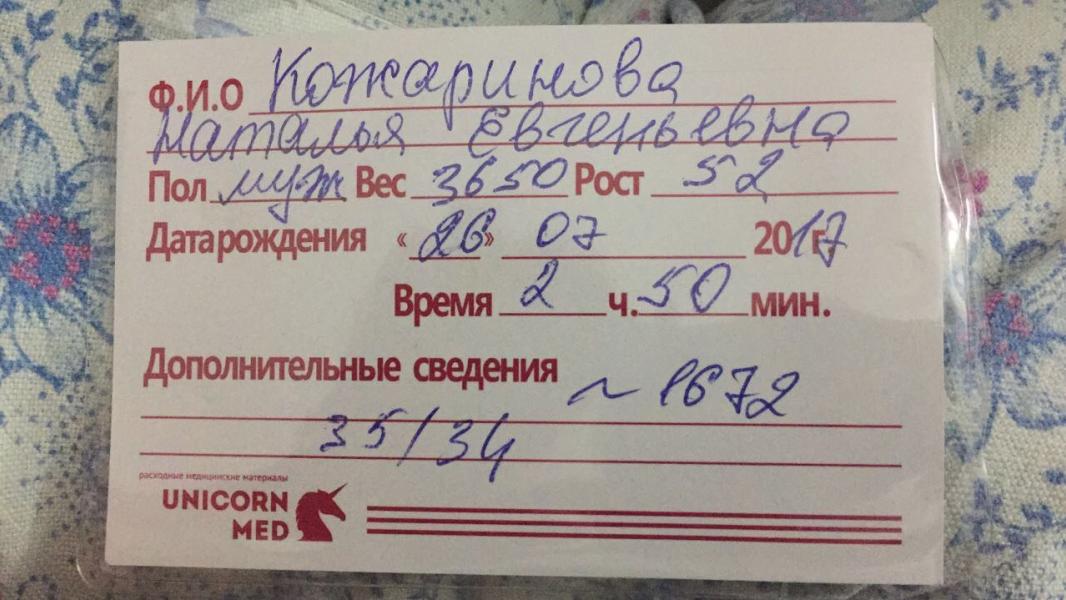 Ф.И.О Кожаринова
Наталья Евгеньевна
Пол муж Вес 3650 Рост 52
Дата рождения «26» 07 2017г
Время 2 ч. 50 мин.
Дополнительные сведения ~ 1672
35/34
расходные медицинские материалы
UNICORN
MED